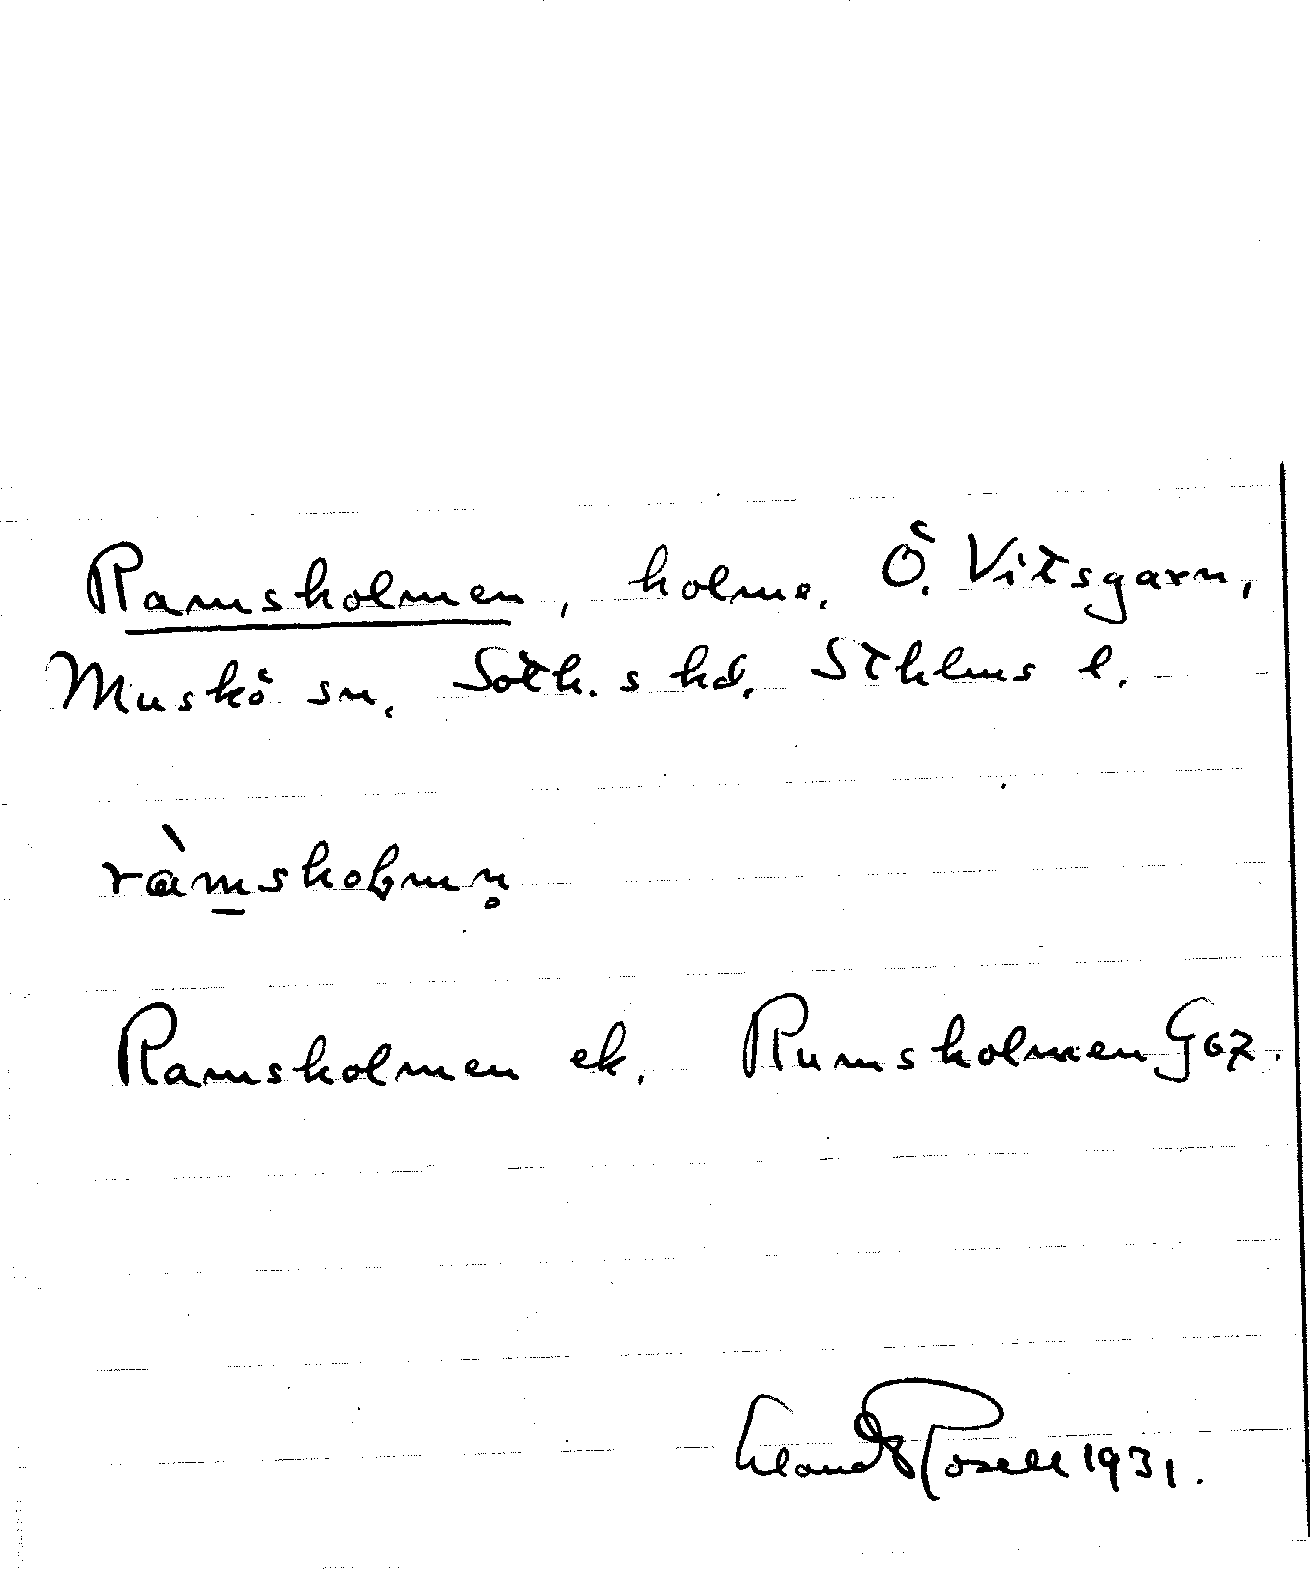 Ramsholmen, holme. Ö. Vitsgarn,
Muskö sn, Soth. s hd, Sthlms l.
ràmshoɭmn̥
Ramsholmen ek. Rumsholmen Gez.
Eland Rosell 1931.